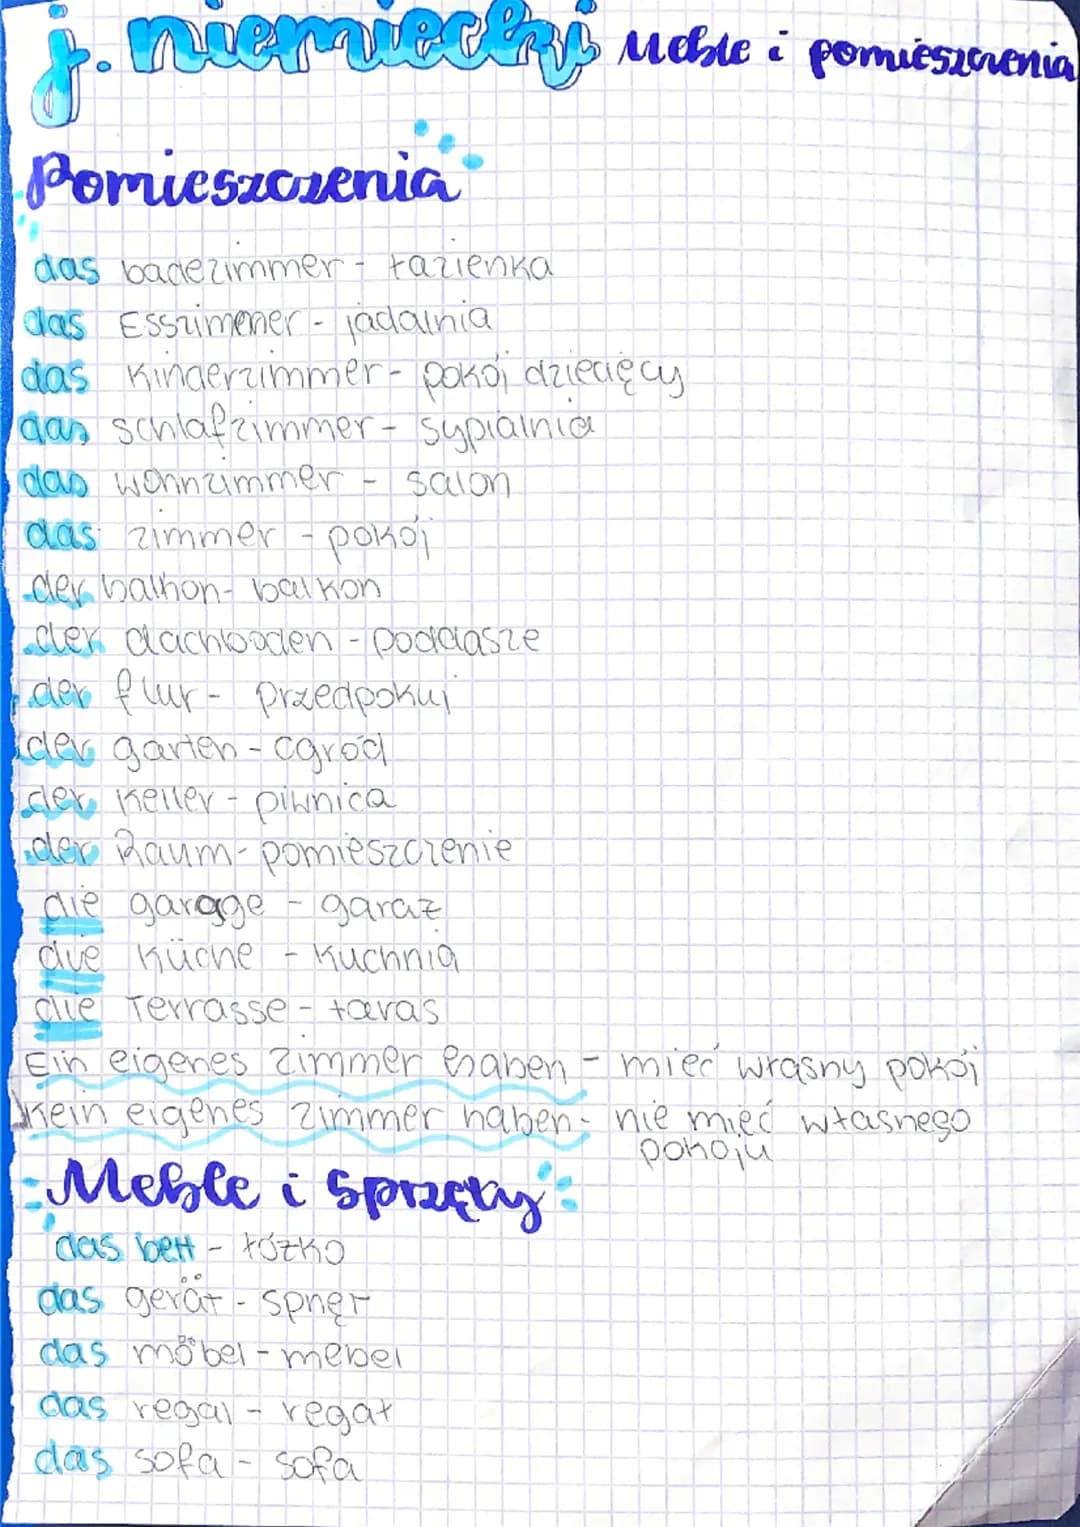 j. niemiecki Meble i pomieszczenia
Pomieszczenia
das badezimmer - łazienka
das Esszimmer - jadalnia
das kinderzimmer - pokój dziecięcy
das schlafzimmer - sypialnia
das wohnzimmer - salon
das zimmer - pokój
der balkon - balkon
der dachboden - poddasze
der flur - przedpokuj
der garten - ogród
der keller - piwnica
der Raum - pomieszczenie
die garage - garaż
die küche - kuchnia
die Terrasse - taras
Ein eigenes zimmer haben - mieć własny pokój
kein eigenes zimmer haben - nie mieć własnego
pokoju
Meble i sprzęty
das bett - łóżko
das gerät - sprzęt
das möbel - mebel
das regal - regał
das sofa - sofa